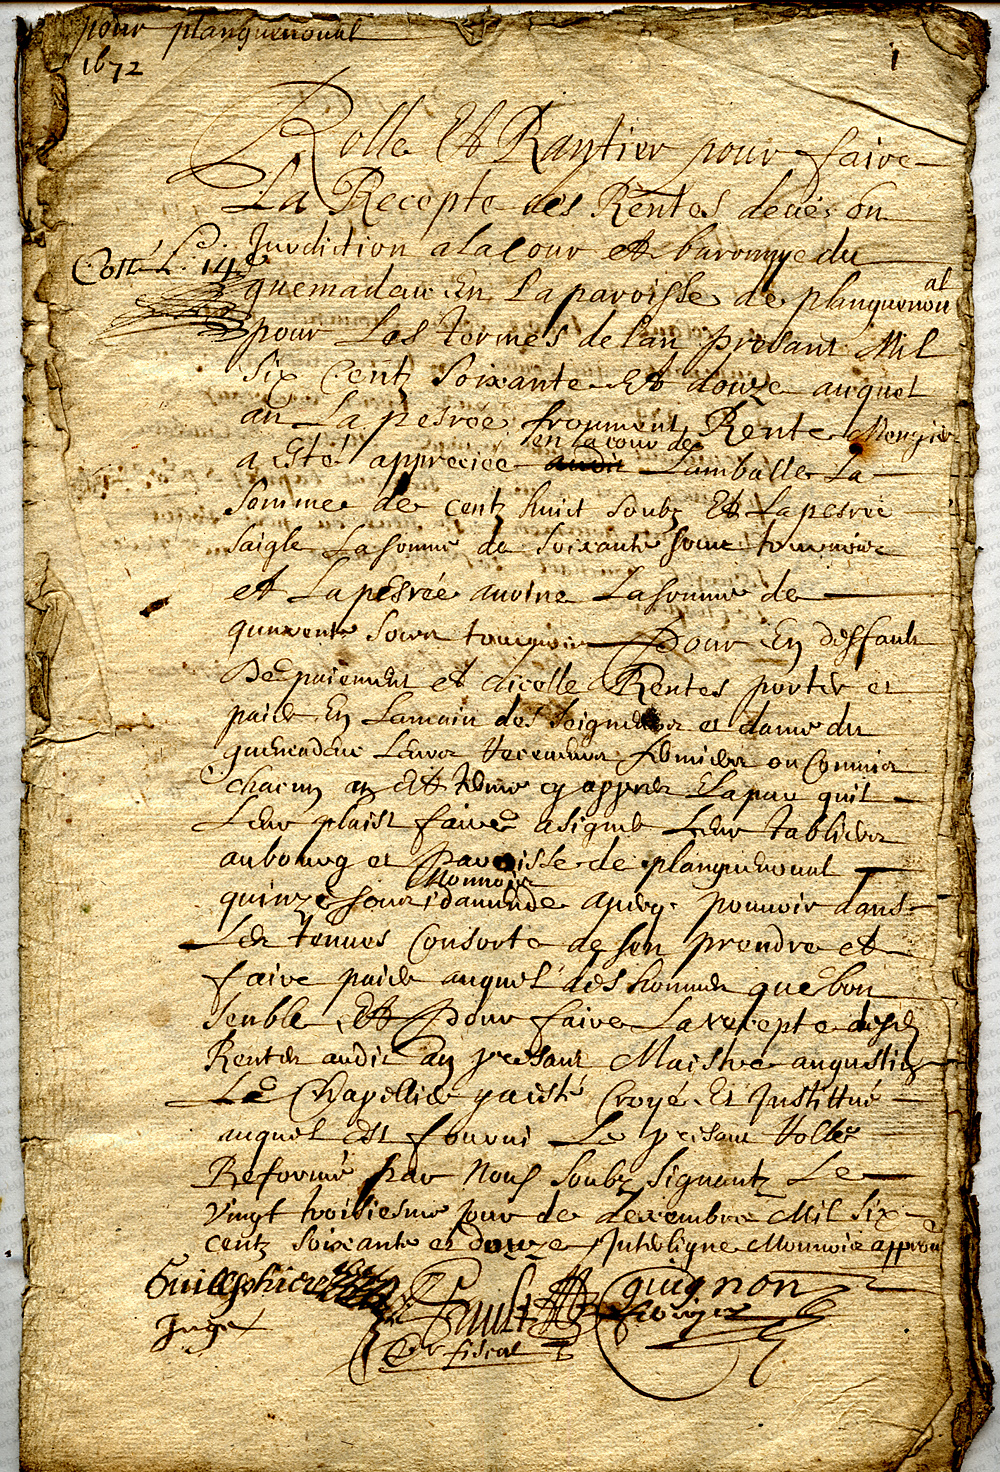 pour planguenoual
1672
1
Rolle Et Rantier pour faire
La Recepte des Rentes deues en
Jurdiction a la cour et baronnye du
Cotté L. 14e
guemadeuc En La paroisse de planguenoual
pour Les termes de lan presant Mil
Six Centz Soixante Et douze auquel
an La pesree froument Rente Mengier
a Esté appreciee en la cour de Lamballe La
Somme de centz huict soubz Et La pesree
saigle La somme de soixante soux tournois
et La pesrée avoine La somme de
quarente soux tournois Pour En deffault
De paiement et dicelle Rentes porter et
paier En La main des seigneur et dame du
guemadeuc Leurs Receveurs fermiers ou Commis
chacun an Et terme cy appres La par quil
Leur plaist faire asigné Leur tablier
au bourg et paroisse de planguenoual
quinze soux monnois damende avecq pouvoir dans
Les tenues Consorte de sen prendre et
faire paier auquel des hommes que bon
semble Et Pour faire La recepte desd
Rentes audit an presant Maistre augustin
Le Chapellier y a esté Croyé Et Justittué
auquel Est fourni Le presant Rolle
Reformé par Nous soubz signantz Le
vingt troisiesme jour de decembre Mil six
centz soixante et douze Interligne Monnois approuvé
Juge
Fault
guignon
fiscal